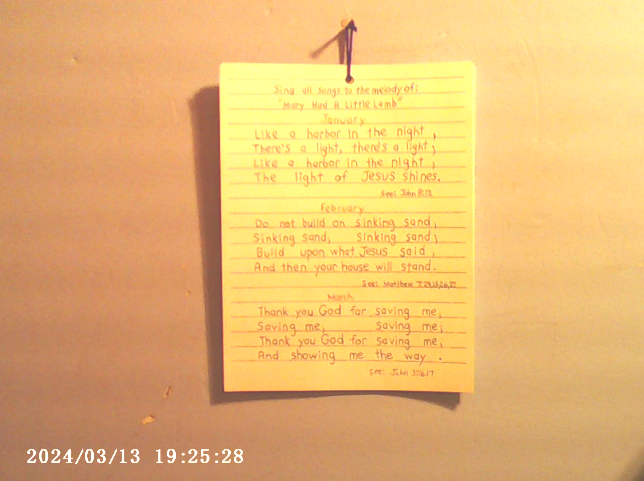 Sing all songs to the melody of:
"Mary Had A Little Lamb"
January
Like a harbor in the night,
There's a light, there's a light;
Like a harbor in the night,
The light of Jesus shines.
See: John 8:12
February
Do not build on sinking sand,
Sinking sand, Sinking sand;
Build upon what Jesus said,
And then your house will stand.
See: Matthew 7:24,25,26,27
March
Thank you God for saving me,
Saving me, Saving me;
Thank you God for saving me,
And showing me the way.
See: John 3:16,17
2024/03/13 19:25:28